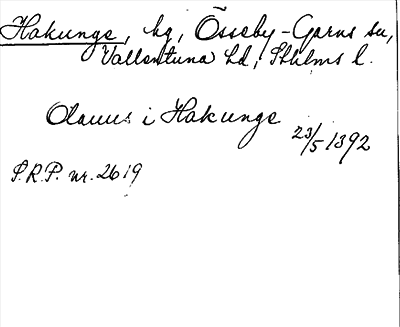 Hakunge, hg, Össeby-Garns sn,
Vallentuna hd, Sthlms l.
Olauus i Hakunge
23/5 1392
S.R.P. nr. 2619